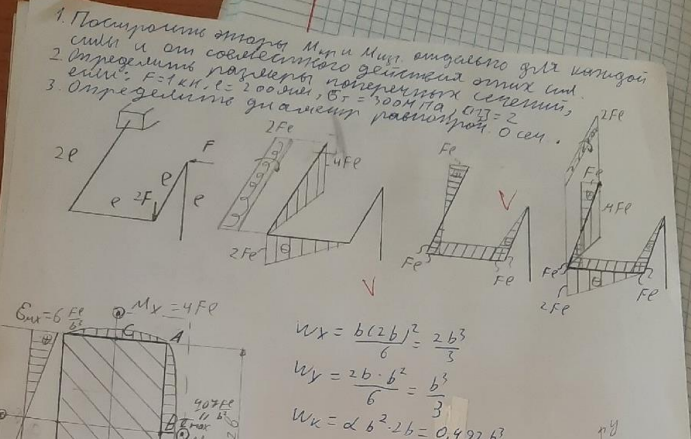 1. Построить эпюры Мкр и Мизг. отдельно для каждой
силы и от совместного действия этих сил.
2. Определить размеры поперечных сечений,
если: F=1кн, l=200мм, бт=300МПа, [n]=2
3. Определить диаметр равнопроч. О сеч.
2l
l
2F
l
F
l
2Fl
4Fl
2Fl
Fl
Fl
Fl
2Fl
Fl
4Fl
Fl
2Fl
Fl
Mx = 4Fl
A
B
max
Wx = b(2b)²/6 = 2b³/3
Wy = 2b·b²/6 = b³/3
Wк = αb²·2b = 0,492b³